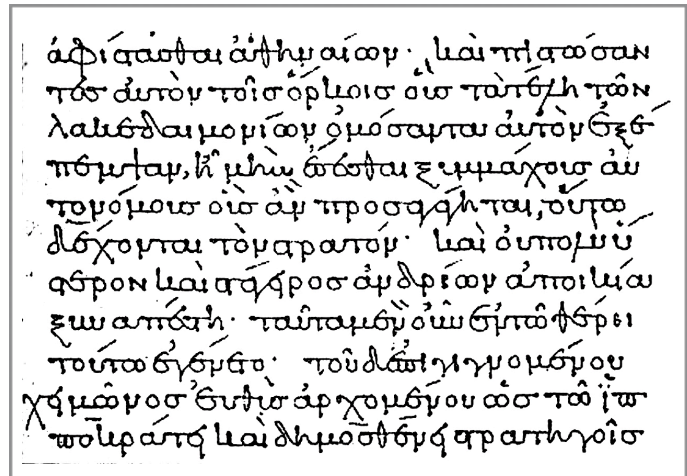 ἀφίστασθαι ἀθηναίων· καὶ πιστωσαν
τες αὐτὸν τοῖς ὅρκοις οὓς τὰ τέλη τῶν
λακεδαιμονίων ὀμόσαντα αὐτὸν ἐξέ
πεμψαν, ἦ μὴν ἔσεσθαι ξυμμάχους αὐ
τονόμους οὓς ἂν προσαγάγηται, οὕτω
δέχονται τὸν στρατόν· καὶ οὐ πολὺ ὕ
στερον καὶ στάγειρος ἀνδρίων ἀποικία
ξυναπέστη· ταῦτα μὲν οὖν ἐν τῶ θέρει
τούτω ἐγένετο· τοῦ δ' ἐπιγιγνομένου
χειμῶνος εὐθὺς ἀρχομένου ὡς τῶ ἱπ
ποκράτει καὶ δημοσθένει στρατηγοῖς